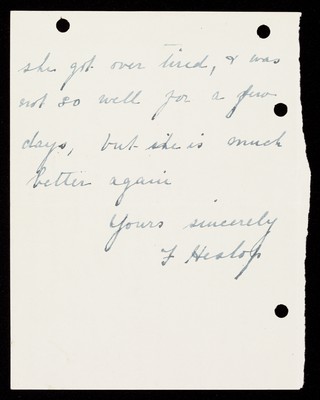 she got over tired, & was
not so well for a few
days, but she is much
better again
Yours sincerely
F Heslop